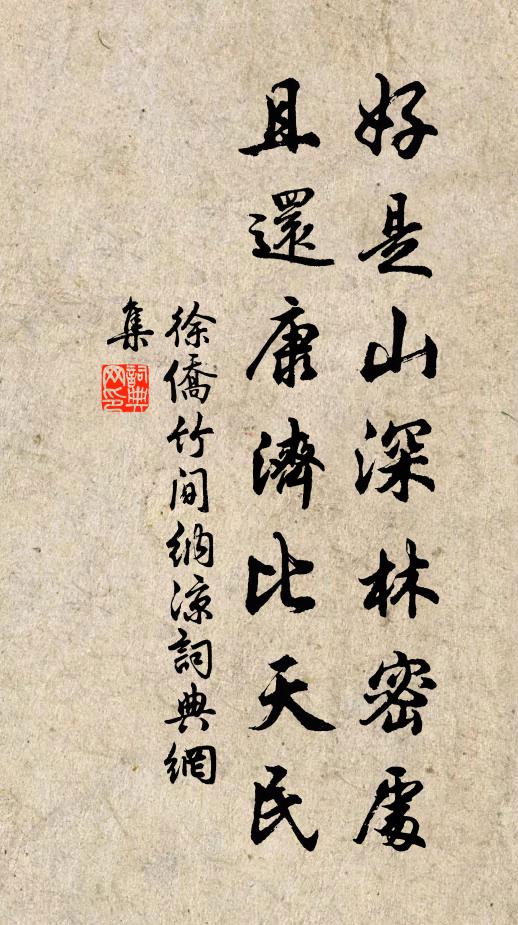 好是山深林密處
且還康濟比天民
徐僑竹間納凉詞典網
集
詞典
网印